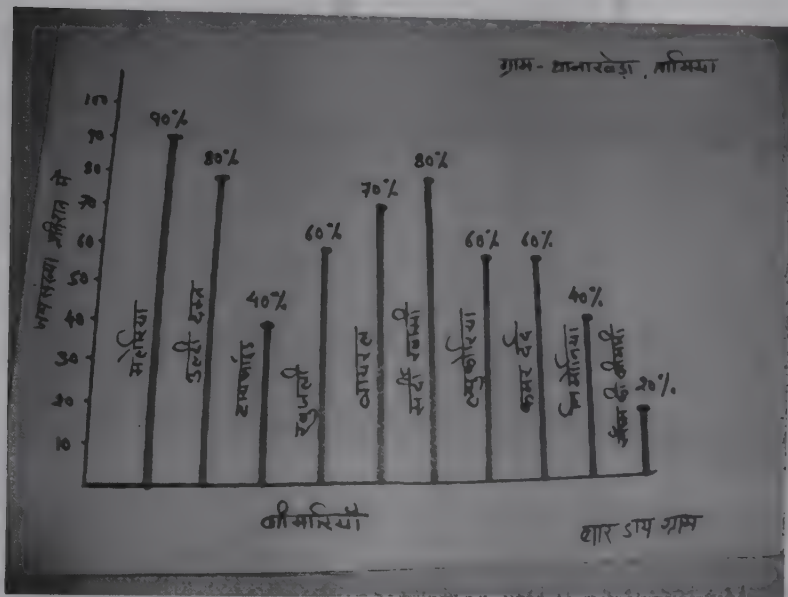 ग्राम - धानाखेड़ा, तामिया
जनसंख्या प्रतिशत में
100
90
80
70
60
50
40
30
20
10
90%
80%
40%
60%
70%
80%
60%
60%
40%
20%
मलेरिया
उल्टी दस्त
टायफाइड
खुजली
वायरल
सर्दी खांसी
ल्युकोरिया
कमर दर्द
निमोनिया
की बीमारी
बीमारियाँ
बार डाय ग्राम